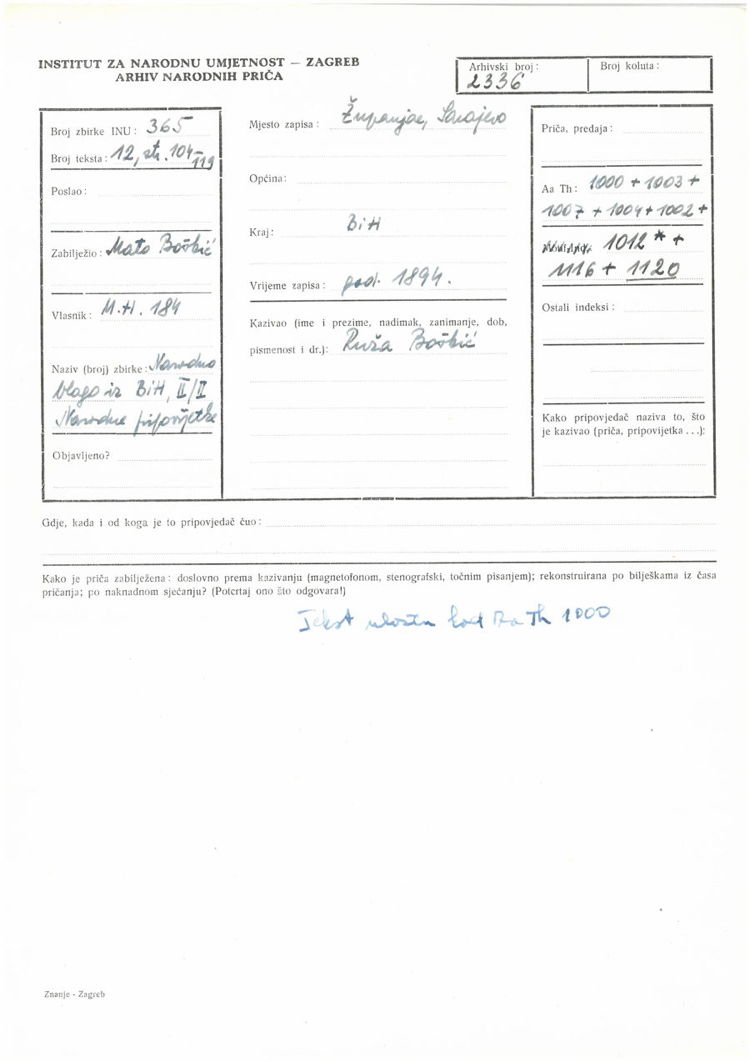 INSTITUT ZA NARODNU UMJETNOST — ZAGREB
ARHIV NARODNIH PRIČA
Arhivski broj:
2336
Broj koluta:
Broj zbirke INU: 365
Broj teksta: 12, str. 104-
119
Poslao:
Zabilježio: Mato Boškić
Vlasnik: M.H. 184
Naziv (broj) zbirke: Narodno
blago iz BiH, II/II
Narodne pripovijetke
Objavljeno?
Mjesto zapisa: Županjac, Sarajevo
Općina:
Kraj: BiH
Vrijeme zapisa: god. 1894.
Kazivao (ime i prezime, nadimak, zanimanje, dob,
pismenost i dr.): Ruža Boškić
Priča, predaja:
Aa Th: 1000 + 1003 +
1007 + 1004 + 1002 +
1012* +
1116 + 1120
Ostali indeksi:
Kako pripovjedač naziva to, što
je kazivao (priča, pripovijetka . . .):
Gdje, kada i od koga je to pripovjedač čuo:
Kako je priča zabilježena: doslovno prema kazivanju (magnetofonom, stenografski, točnim pisanjem); rekonstruirana po bilješkama iz časa
pričanja; po naknadnom sjećanju? (Potcrtaj ono što odgovara!)
Tekst uložen kod Aa Th 1000
Znanje - Zagreb